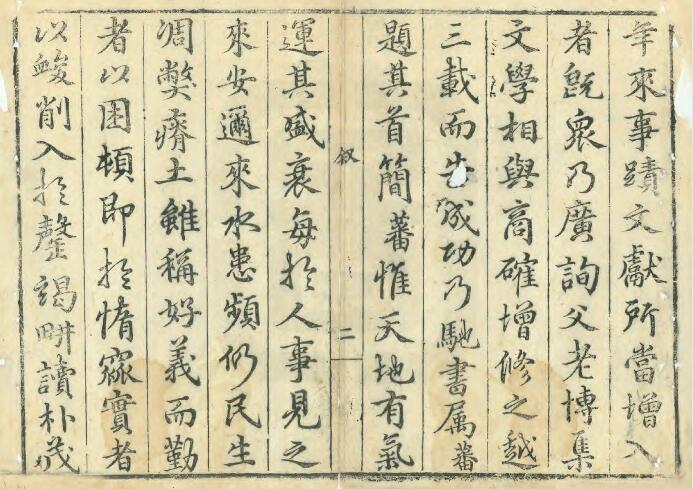 年來事蹟文獻所當增入
者旣衆乃廣詢父老博集
文學相與商確增修之越
三載而告成功乃馳書属蕃
題其首簡蕃惟天地有氣
叙
二
運其盛衰每扵人事見之
來安邇來水患頻仍民生
凋獘瘠土雖稱好義而勤
者以困頓即扵惰窳實者
以朘削入扵罄竭畊讀朴茂